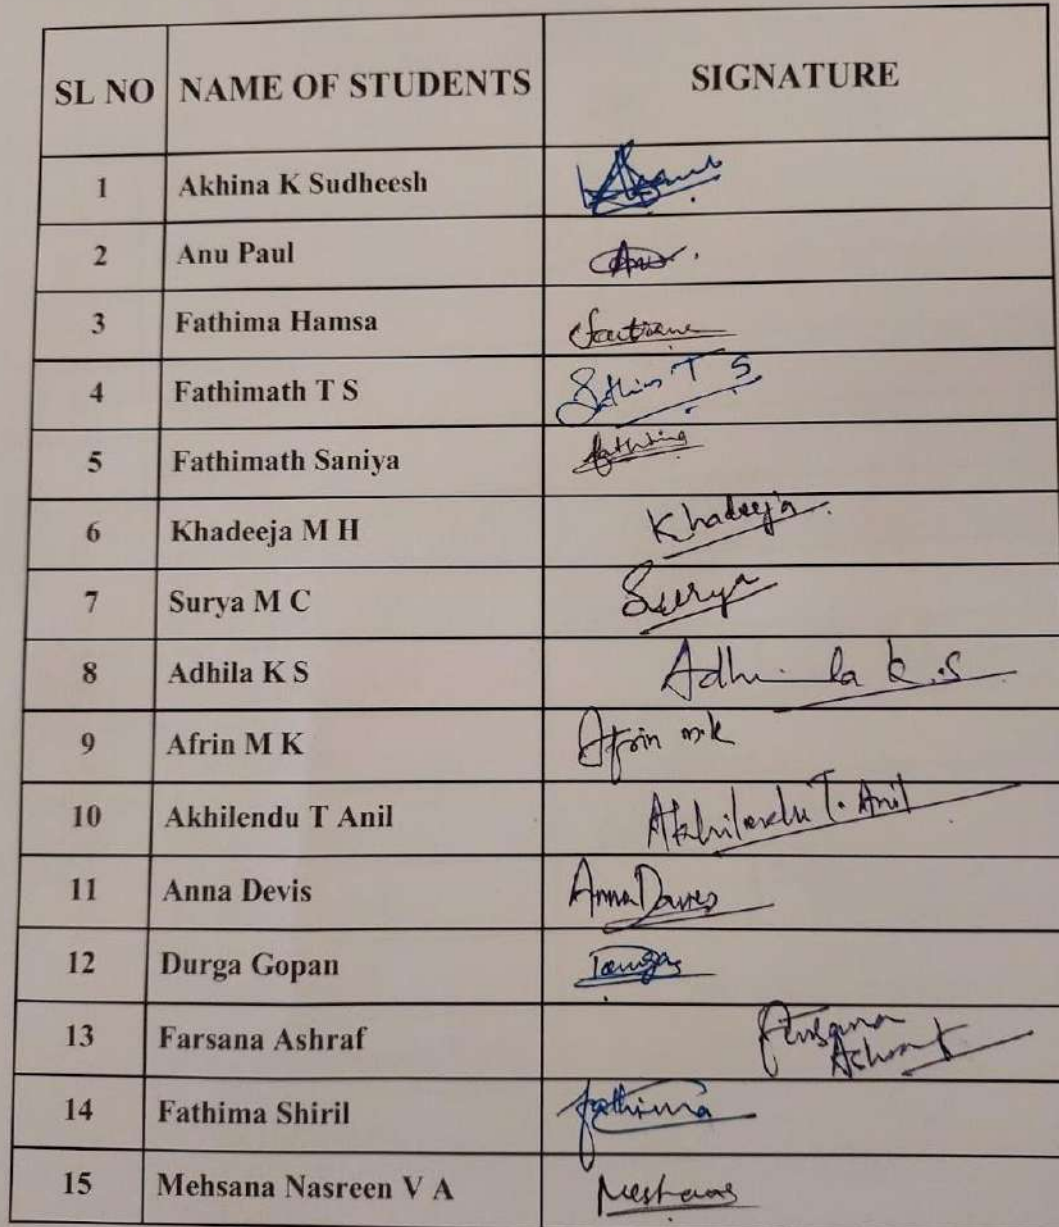 SL NO NAME OF STUDENTS SIGNATURE
1 Akhina K Sudheesh
2 Anu Paul Anu
3 Fathima Hamsa
4 Fathimath T S T S
5 Fathimath Saniya
6 Khadeeja M H Khadeeja
7 Surya M C Surya
8 Adhila K S Adhila K.S
9 Afrin M K Afrin m.k
10 Akhilendu T Anil Akhilendu T. Anil
11 Anna Devis Anna
12 Durga Gopan
13 Farsana Ashraf Farsana
Ashraf
14 Fathima Shiril fathima
15 Mehsana Nasreen V A